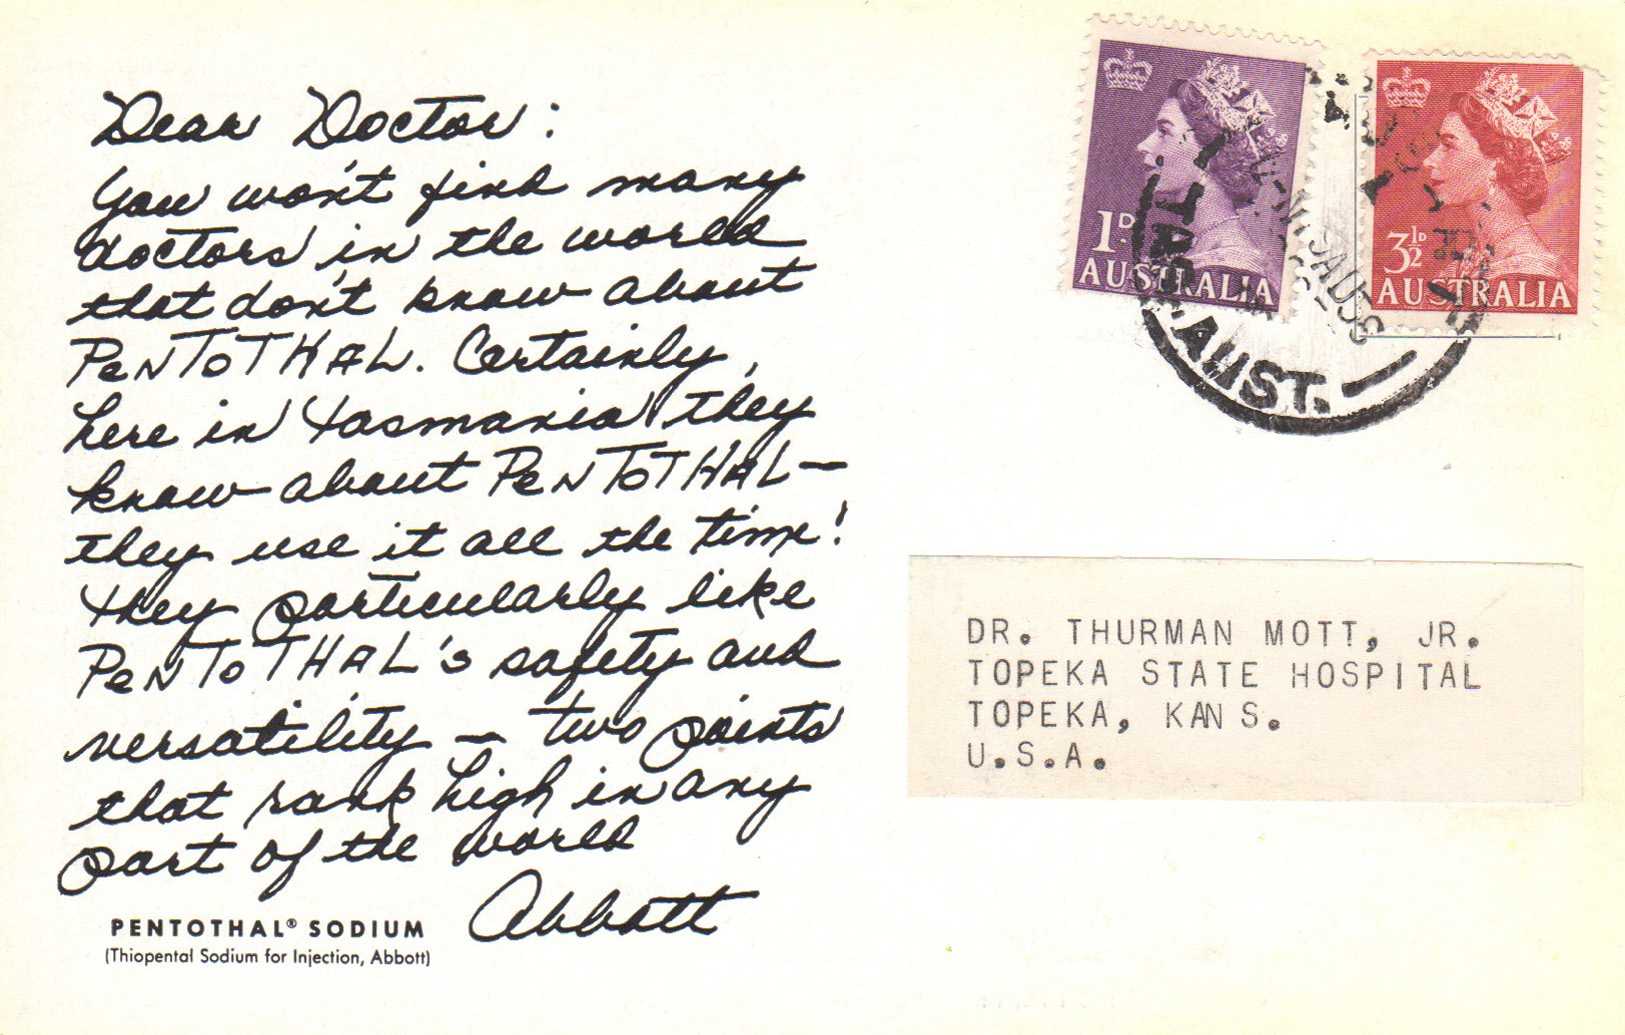 Dear Doctor:
You won't find many
doctors in the world
that don't know about
PENTOTHAL. Certainly,
here in Tasmania they
know about PENTOTHAL—
they use it all the time!
They particularly like
PENTOTHAL's safety and
versatility — two points
that rank high in any
part of the world
Abbott
PENTOTHAL® SODIUM
(Thiopental Sodium for Injection, Abbott)
1D
AUSTRALIA
3½D
AUSTRALIA
TAS. AUST.
DR. THURMAN MOTT, JR.
TOPEKA STATE HOSPITAL
TOPEKA, KANS.
U.S.A.